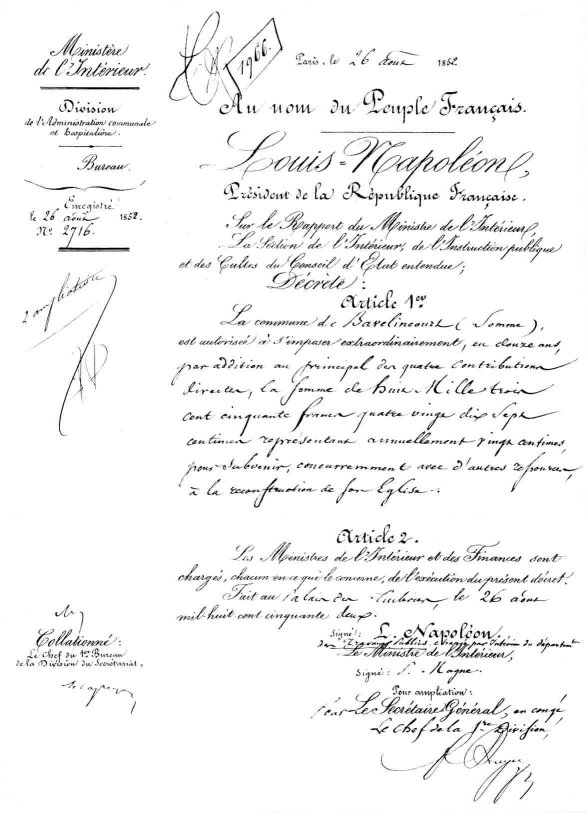 Ministère
de l'Intérieur.
Division
de l'Administration communale
et hospitalière.
Bureau.
Enregistré
le 26 août 1852.
No. 2716.
2 ampliations
1966.
Paris, le 26 août 1852.
Au nom du Peuple Français.
Louis-Napoléon,
Président de la République Française.
Sur le Rapport du Ministre de l'Intérieur,
La Section de l'Intérieur, de l'Instruction publique
et des Cultes du Conseil d'Etat entendue;
Décrète:
Article 1er
La commune de Bavelincourt (Somme),
est autorisée à s'imposer extraordinairement, en douze ans,
par addition au principal des quatre contributions
directes, la somme de huit Mille trois
cent cinquante francs quatre vingt dix Sept
centimes représentant annuellement vingt centimes,
pour subvenir, concurremment avec d'autres ressources,
à la reconstruction de son Eglise.
Article 2.
Les Ministres de l'Intérieur et des Finances sont
chargés, chacun en ce qui le concerne, de l'exécution du présent décret.
Fait au palais de St Cloud, le 26 août
mil huit cent cinquante deux.
Signé: L. Napoléon.
des travaux publics chargé par Intérim du département
Le Ministre de l'Intérieur,
Signé: P. Magne.
Pour ampliation:
pour Le Secrétaire Général, en congé
Le Chef de la 1re Division,
Collationné:
Le Chef du 1er Bureau
de la Division du Secrétariat,